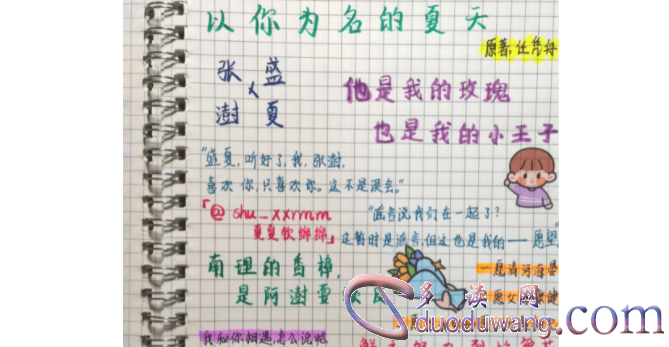 以你为名的夏天
原著:任凭舟
张 盛
×
澍 夏
他是我的玫瑰
也是我的小王子
“盛夏,听好了,我,张澍,
喜欢你,只喜欢你。这不是误会。”
「@ shu_xxrmm
夏夏软绵绵」
“谣言说我们在一起了?
这暂时是谣言,但这也是我的——愿望”
南理的香樟,
是阿澍要
一愿清河海晏
二愿女
我和你相遇,怎么说呢
多读网
duoduwang.com